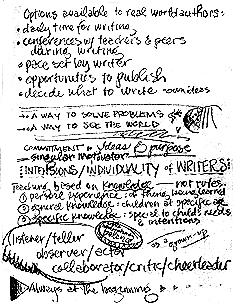 Options available to real world authors:
• daily time for writing
• conferences with teachers & peers
during writing
• pace set by writer
• opportunities to publish
• decide what to write ourselves
→ A WAY TO SOLVE PROBLEMS
→ A WAY TO SEE THE WORLD
COMMITMENT to Ideas & purpose
singular motivator
INTENSIONS/INDIVIDUALITY of WRITERS:
Teachers, based on knowledge — not rules:
① personal experience on theme being learned
② general knowledge: children at specific age
③ specific knowledge: special to child's needs
& intentions
listener/teller
observer/actor
as a grown-up
collaborator/critic/cheerleader
Always at the beginning